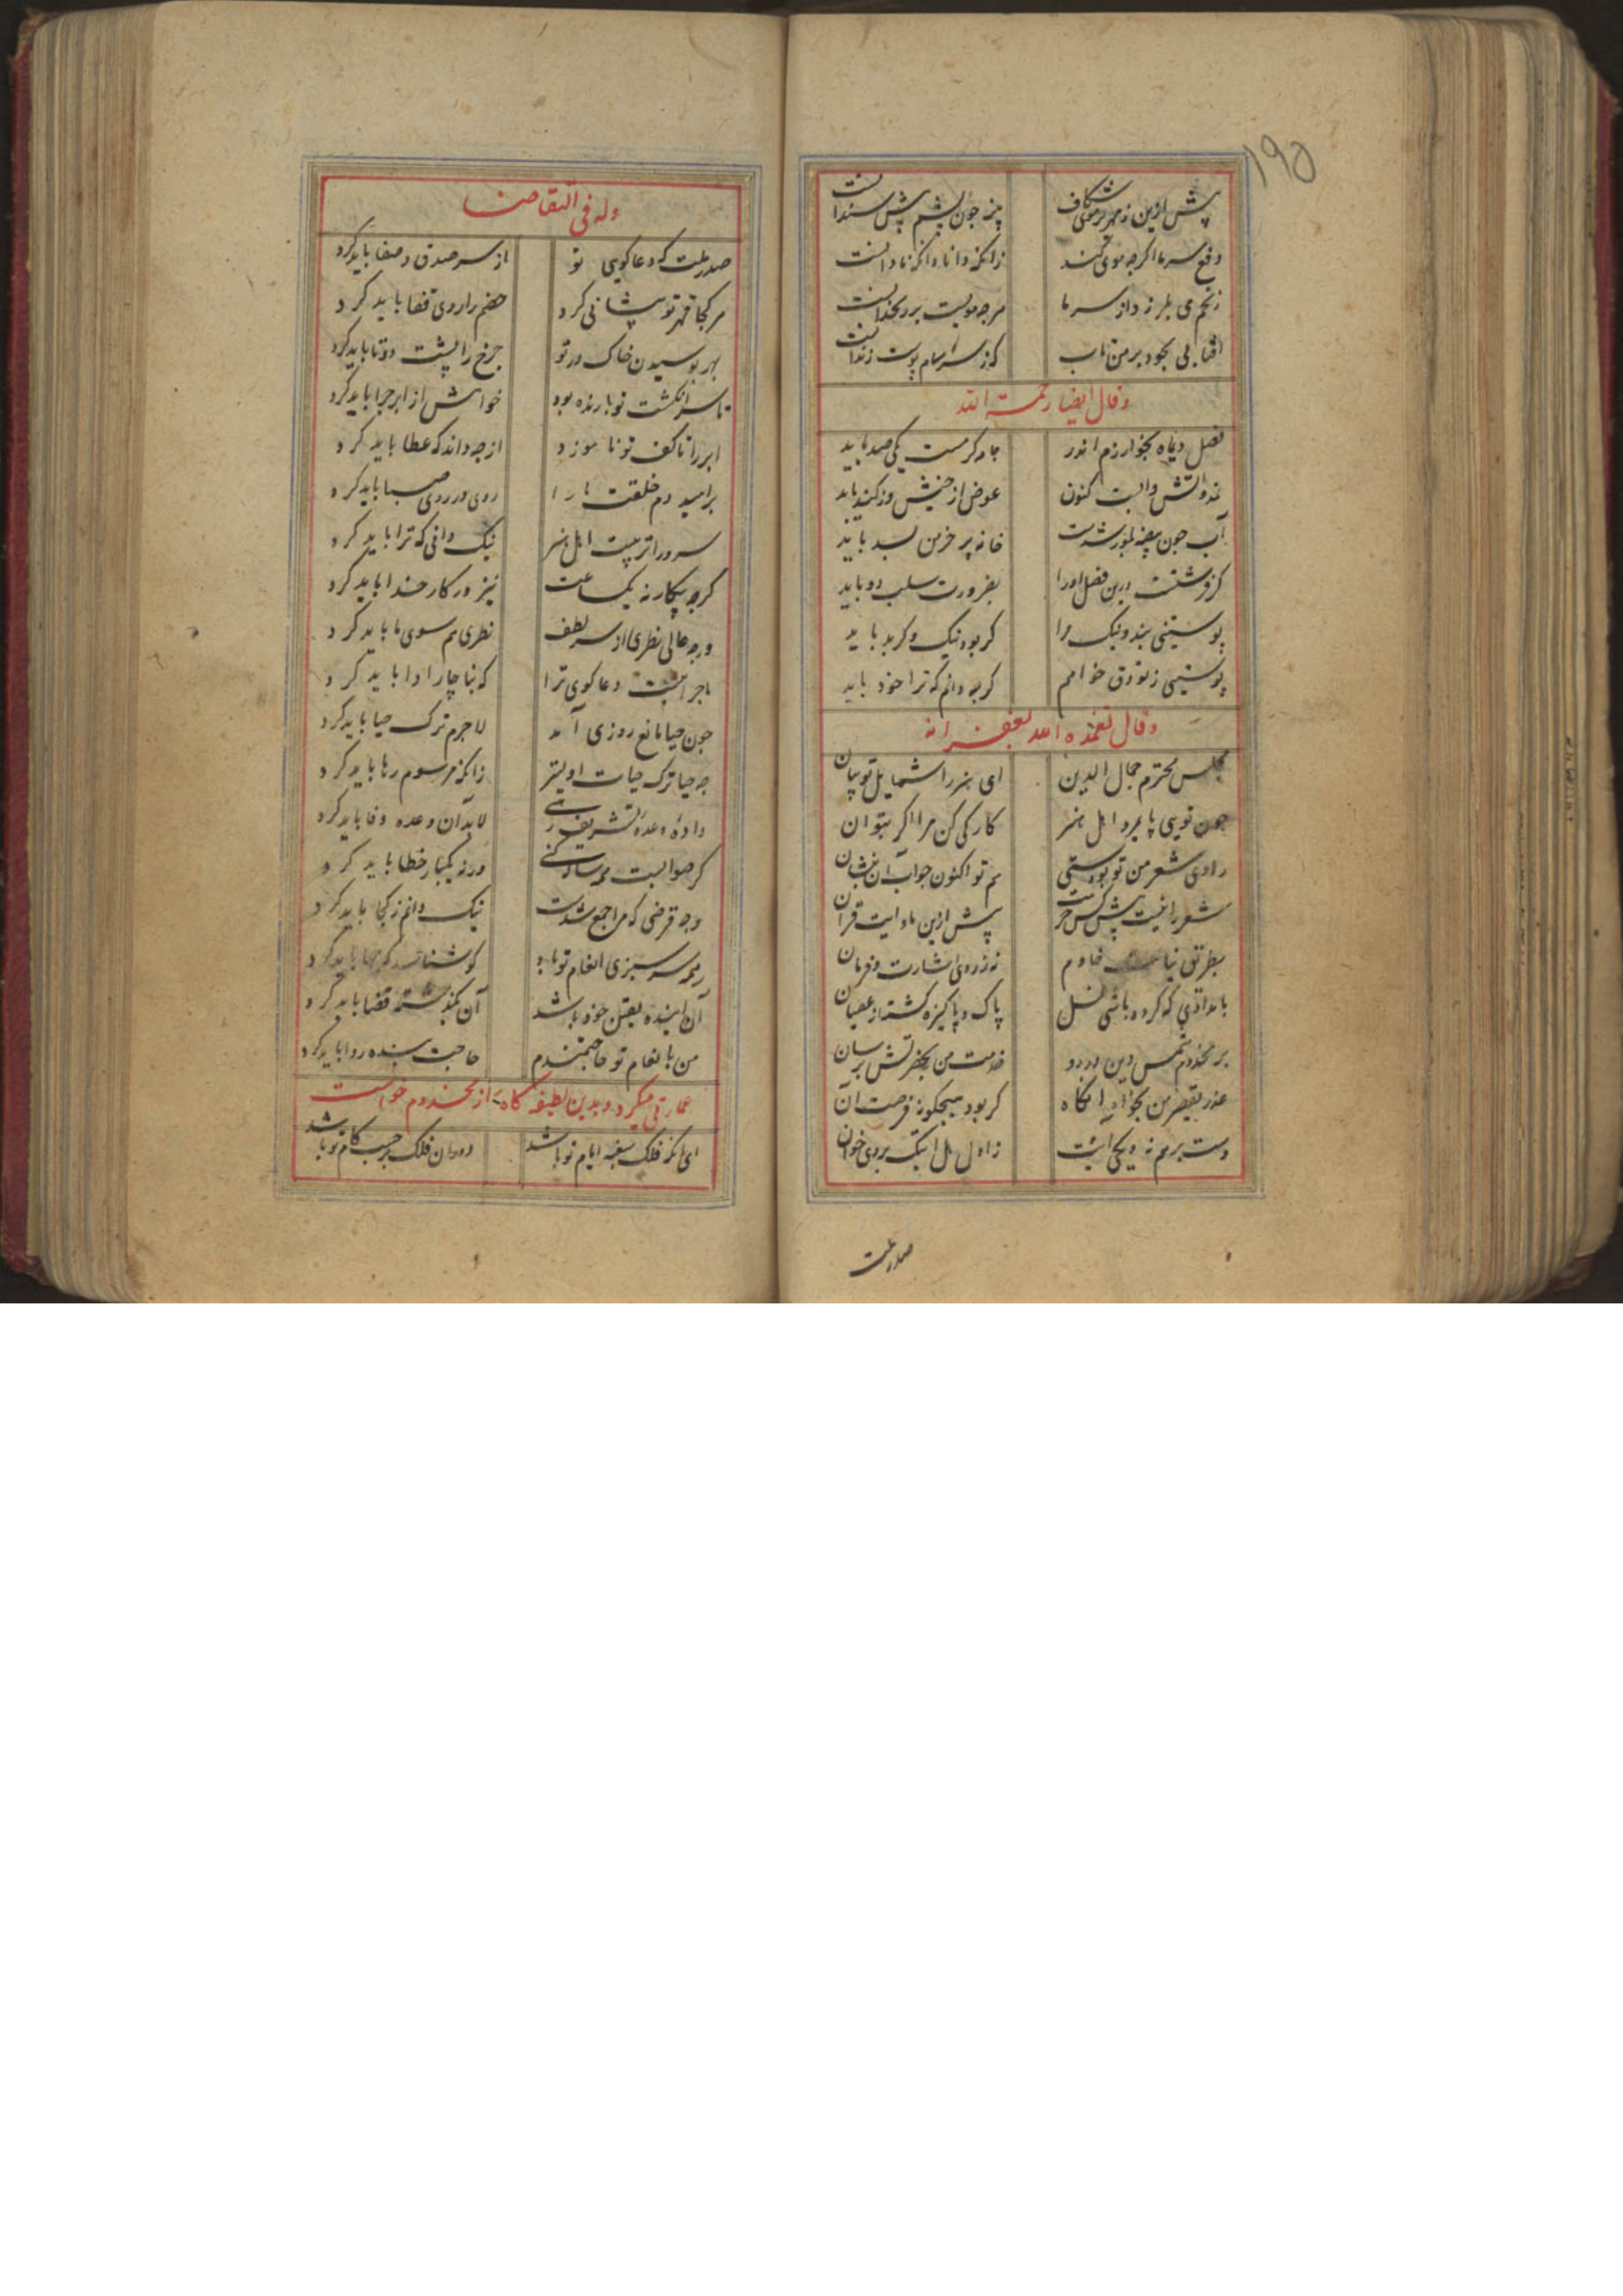 ۱۹۵
پیش ازین زمهریر موی شکاف پنبه چون پشم پیش سندانست
دفع سرما اگرچه موی کند زانکه دانا و آنکه نادانست
زنخم می بلرزد از سرما هرچه مویست بر زنخدانست
آفتابی بجود بر من تاب که ز سرسام پوست زندانست
وقال ایضا رحمة الله
فصل دیماه بخوارزم اندر جامه گر هست یکی صد باید
عوض از خیش و زکند باید
آب چون بیضه بلور شدست خانه پر خرمن بسد باید
بضرورت سلب دو باید
پوستینی بنده و نیک مرا گر بود نیک و گر بد باید
پوستینی ز تو ذق خواهم گرچه دانم که ترا خود باید
وقال تغمده الله بغفرانه
مجلس محترم جمال الدین ای هنر را شمایل تو بیان
چون تویی پایمرد اهل هنر کارکی کن مرا اگر بتوان
راوی شعر من تو بودستی هم تو اکنون جواب آن بستان
شعر را نیست پیش کس حرمت پیش ازین ماه آیت قرآن
بطریق نیاز خادم نه ز روی اشارت و فرمان
بامدادی که کرده باشی غسل پاک و پاکیزه گشته از عصیان
بر مخدوم شمس دین در رو خدمت من بحضرتش برسان
عذر تقصیر من بخواه آنگاه گر بود هیچگونه فرصت آن
دست برهم نه و بگی اینت ز اول اینک بروی خوان
صدر ملت
وله فی التقاضا
صدر ملت که دعا گویی تو از سر صدق و صفا باید کرد
هرکجا قهر تو پیشانی کرد خصم را روی قفا باید کرد
بهر بوسیدن خاک در تو چرخ را پشت دوتا باید کرد
تا سر انگشت تو بارنده بود خواهش از ابر چرا باید کرد
ابر را تا کف تو ناموزد از چه داند که عطا باید کرد
بر امید دم خلقت ما را روی در روی صبا باید کرد
سرورا تربیت اهل هنر نیک دانی که ترا باید کرد
گرچه بیکار نه یکساعت نیز در کار خدا باید کرد
ورچه عالی نظری از سر لطف نظری هم سوی ما باید کرد
ماجراییست دعا گوی ترا که بناچار ادا باید کرد
چون حیا مانع روزی آمد لاجرم ترک حیا باید کرد
چه حیا ترک حیات اولیتر زانکه مرسوم رها باید کرد
داده وعده تشریف رهی لابد آن وعده وفا باید کرد
گر صوابست ورنه یکبار خطا باید کرد
وجه قرضی که مرا جمع شدست نیک دانم ز کجا باید کرد
سرسبزی انعام تو باد
آن آینده بقین خود باشد آن بگذشته قضا باید کرد
من بانعام تو حاجتمندم حاجت بنده روا باید کرد
عمارتی میکرد و بدین لطیفه کاه از مخدوم خواست
ای آنکه فلک سغبه ایام تو باشد دوران فلک بر حسب کام تو باشد